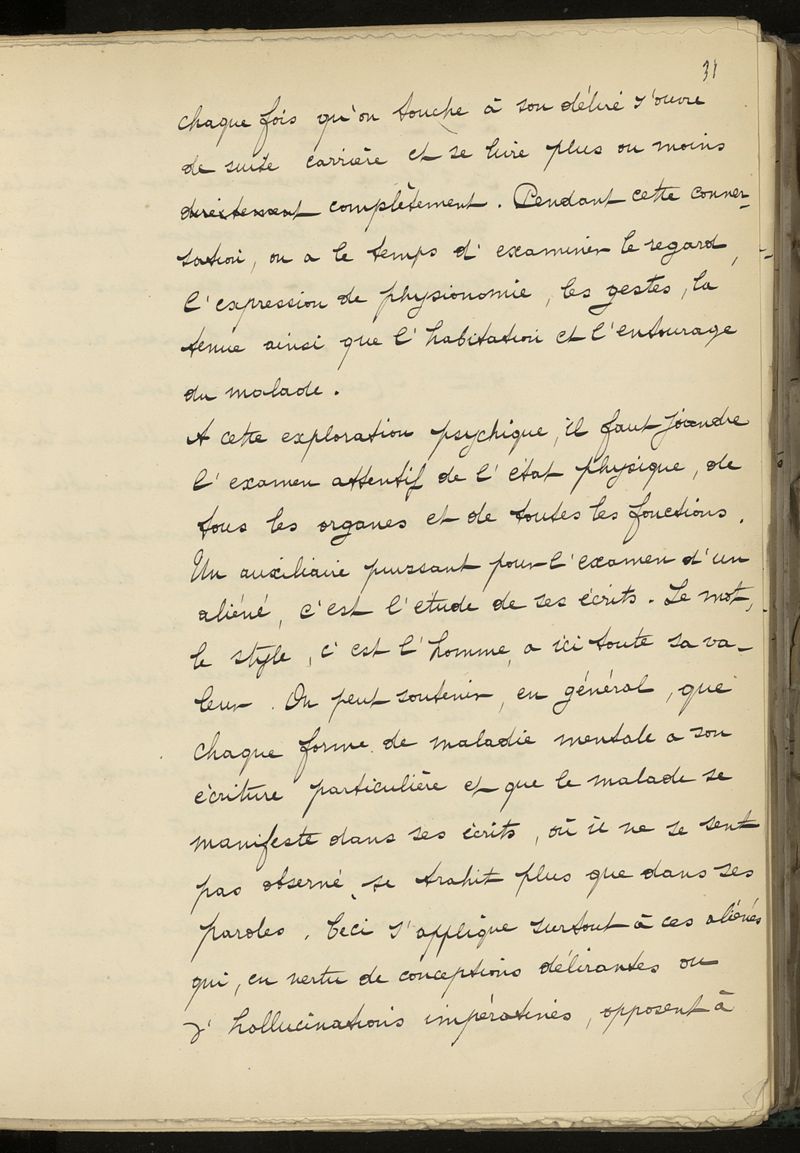 31
chaque fois qu'on touche à son délire s'ouvre
de suite carrière et se livre plus ou moins
directement complètement. Pendant cette conver-
sation, on a le temps d'examiner le regard,
l'expression de physionomie, les gestes, la
tenue ainsi que l'habitation et l'entourage
du malade.
A cette exploration psychique, il faut joindre
l'examen attentif de l'état physique, de
tous les organes et de toutes les fonctions.
Un auxiliaire puissant pour l'examen d'un
aliéné, c'est l'étude de ses écrits. Le mot,
le style, c'est l'homme, a ici toute sa va-
leur. On peut soutenir, en général, que
chaque forme de maladie mentale a son
écriture particulière et que le malade se
manifeste dans ses écrits, où il ne se sent
pas observé, se trahit plus que dans ses
paroles. Ceci s'applique surtout à ces aliénés
qui, en vertu de conceptions délirantes ou
d'hallucinations impératives, opposent à